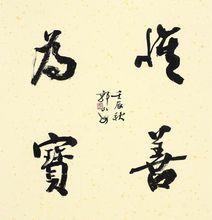 惟善
為寶
壬辰秋